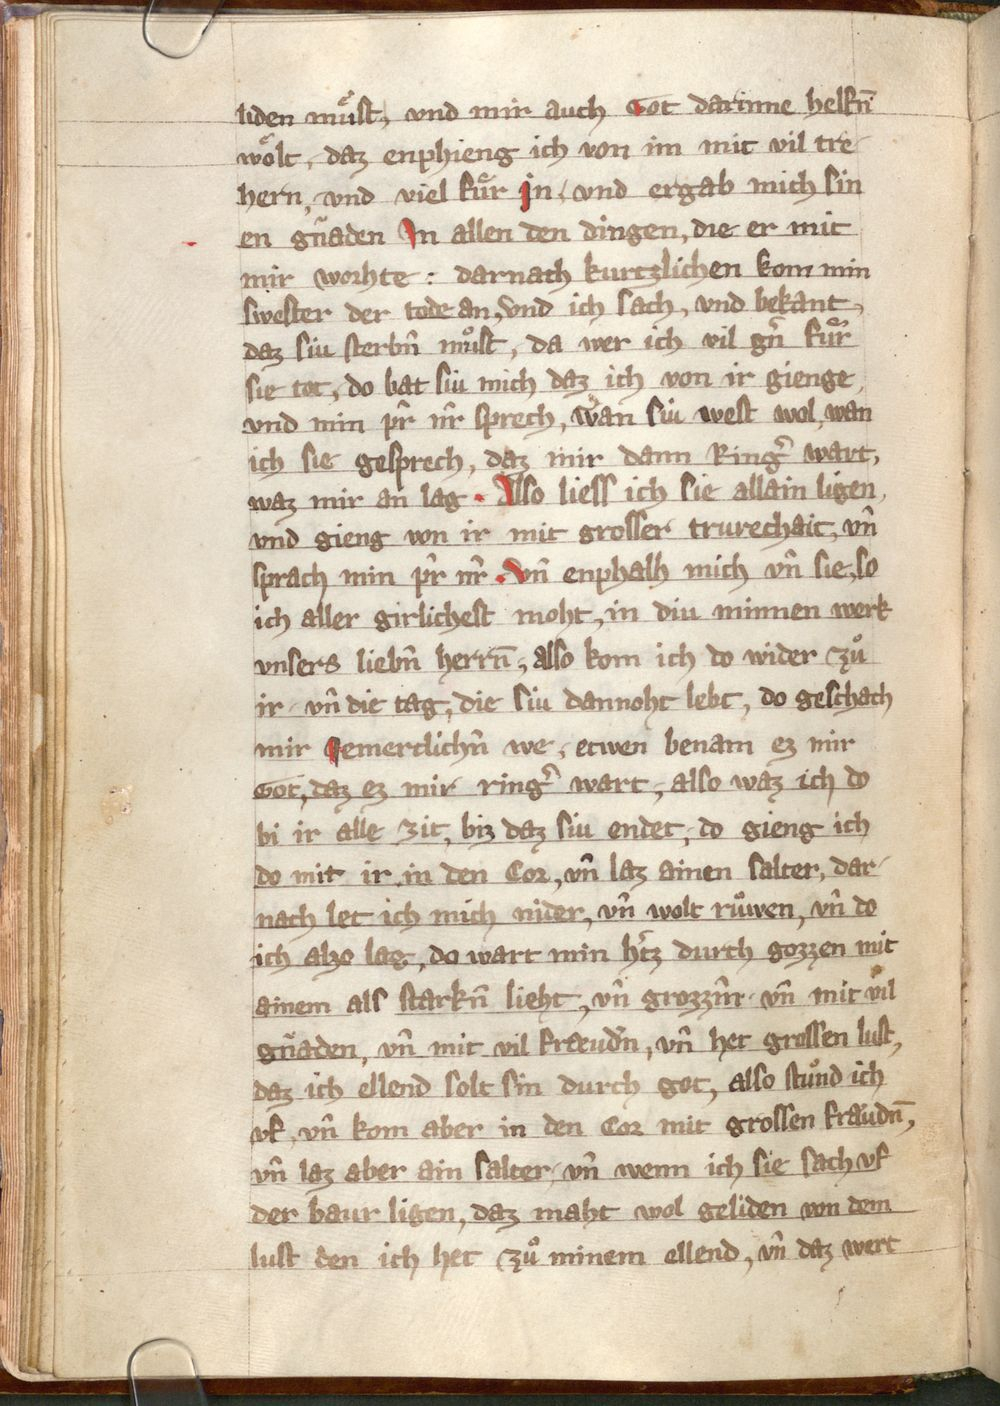 liden muͤst, vnd mir auch Got darinne helfn̄
woͤlt, daz enphieng ich von im mit vil tre
hern, vnd viel fuͤr in, vnd ergab mich sin
en gn̄aden In allen den dingen, die er mit
mir worhte : darnach kurtzlichen kom min
swester der tode an, vnd ich sach, vnd bekant,
daz siu sterbn̄ muͦst, da wer ich vil gn̄ fuͤr
sie tot, do bat siu mich daz ich von ir gienge,
vnd min pr̄ nr̄ sprech, wan siu west wol, wan
ich sie gesprech, daz mir dann Ringꝰ wart,
waz mir an lag . Also liess ich sie allain ligen,
vnd gieng von ir mit grosser trurechait, vn̄
sprach min pr̄ nr̄ . Vn̄ enphalh mich vn̄ sie, so
ich aller girlichest moht, in diu minnen werk
vnsers liebn̄ herrn̄, also kom ich do wider zuͦ
ir vn̄ die tag, die siu dannoht lebt, do geschach
mir Jemertlichn̄ we, etwen benam ez mir
Got, daz ez mir ringꝰ wart, also waz ich do
bi ir alle zit, biz daz siu endet, do gieng ich
do mit ir in den Cor, vn̄ laz ainen salter, dar
nach let ich mich nider, vn̄ wolt ruͦwen, vn̄ do
ich also lag, do wart min hꝰtz durch gozzen mit
ainem als starkn̄ lieht, vn̄ grozzn̄r vn̄ mit vil
gn̄aden, vn̄ mit vil freudn̄, vn̄ het grossen lust,
daz ich ellend solt sin durch got, also stuͦnd ich
vf, vn̄ kom aber in den Cor mit grossen fraͤudn̄,
vn̄ laz aber ain salter, vn̄ wenn ich sie sach vf
der baur ligen, daz maht wol geliden von dem
lust den ich het zuͦ minem ellend, vn̄ daz wert